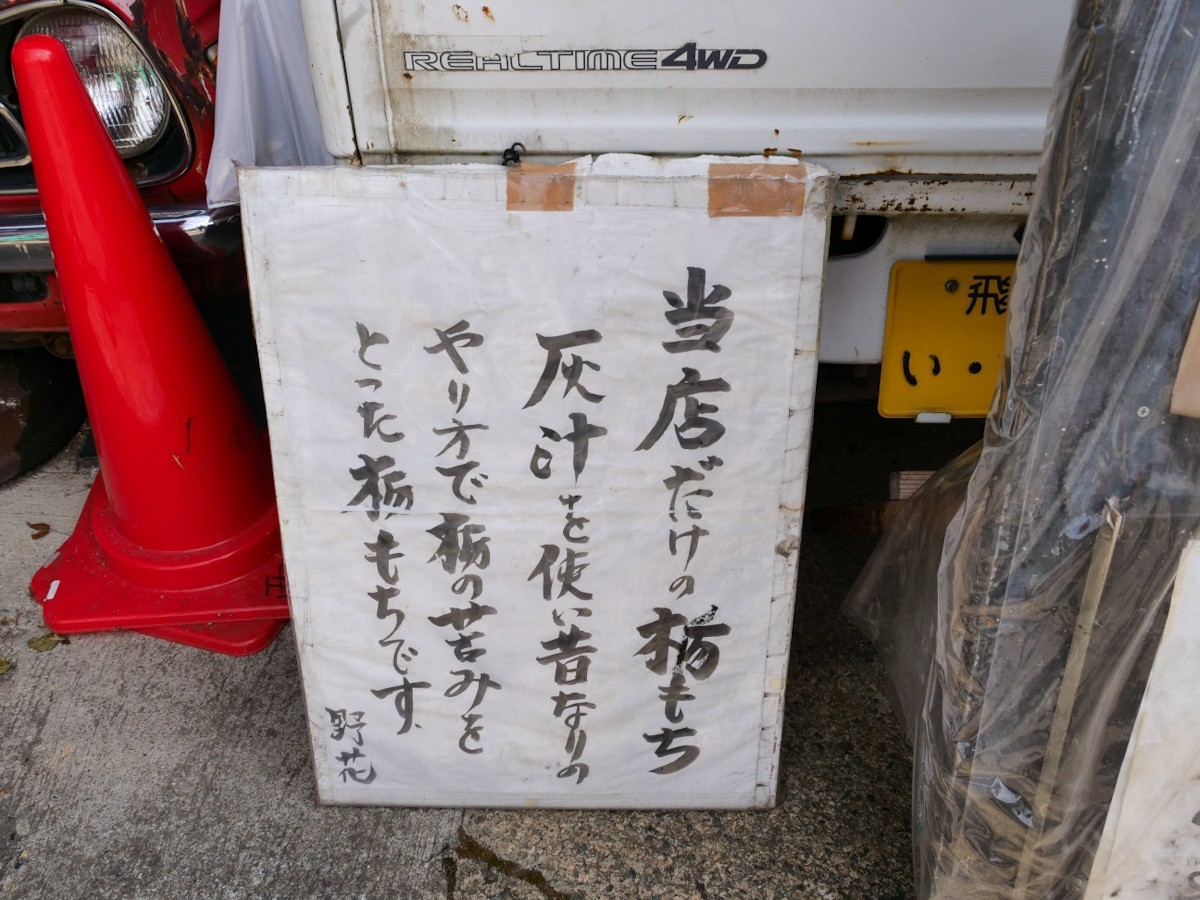 REALTIME 4WD
当店だけの栃もち
灰汁を使い昔なりの
やり方で栃の苦みを
とった栃もちです、
野花
飛
い・